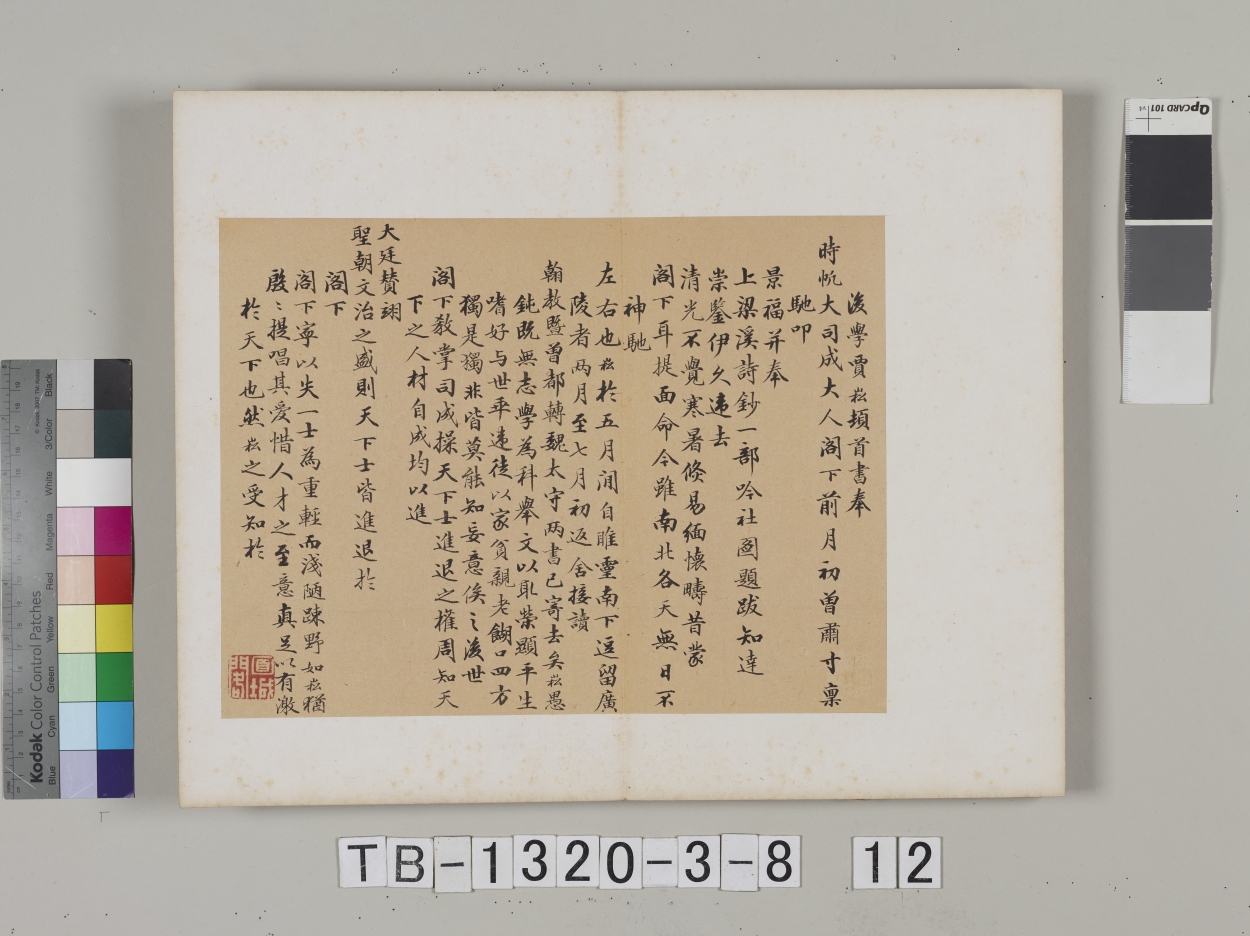 後學賈崧頓首書奉
時帆大司成大人閣下前月初曾肅寸稟
馳叩
景福并奉
上梁溪詩鈔一部吟社圖題跋知達
崇鑒伊久違去
清光不覺寒暑倏易緬懷疇昔蒙
閣下耳提面命今雖南北各天無日不
神馳
左右也崧於五月間自睢靈南下逗留廣
陵者兩月至七月初返舍接讀
翰教暨曾都轉魏太守兩書已寄去矣崧愚
鈍既無志學為科舉文以取榮顯平生
嗜好与世乖違徒以家貧親老餬口四方
獨是獨非皆莫能知妄意俟之後世
閣下敎掌司成操天下士進退之權周知天
下之人材自成均以進
大廷贊翊
聖朝文治之盛則天下士皆進退於
閣下
閣下寧以失一士為重輕而淺陋踈野如崧猶
殷〻提唱其愛惜人才之至意真足以有激
於天下也然崧之受知於
TB-1320-3-8 12
QpCARD 101 v4
Kodak Color Control Patches
© Kodak, 2007 TM: Kodak
Blue
Cyan
Green
Yellow
Red
Magenta
White
3/Color
Black